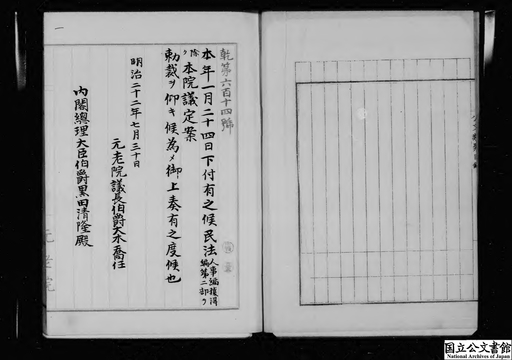 乾第六百十四號
本年一月二十四日下付有之候民法人事編獲得編第二部ヲ
除ク本院議定案
勅裁ヲ仰キ候為メ御上奏有之度候也
明治二十二年七月三十日
元老院議長伯爵大木喬任
内閣總理大臣伯爵黒田清隆殿
元老院
国立公文書館
National Archives of Japan